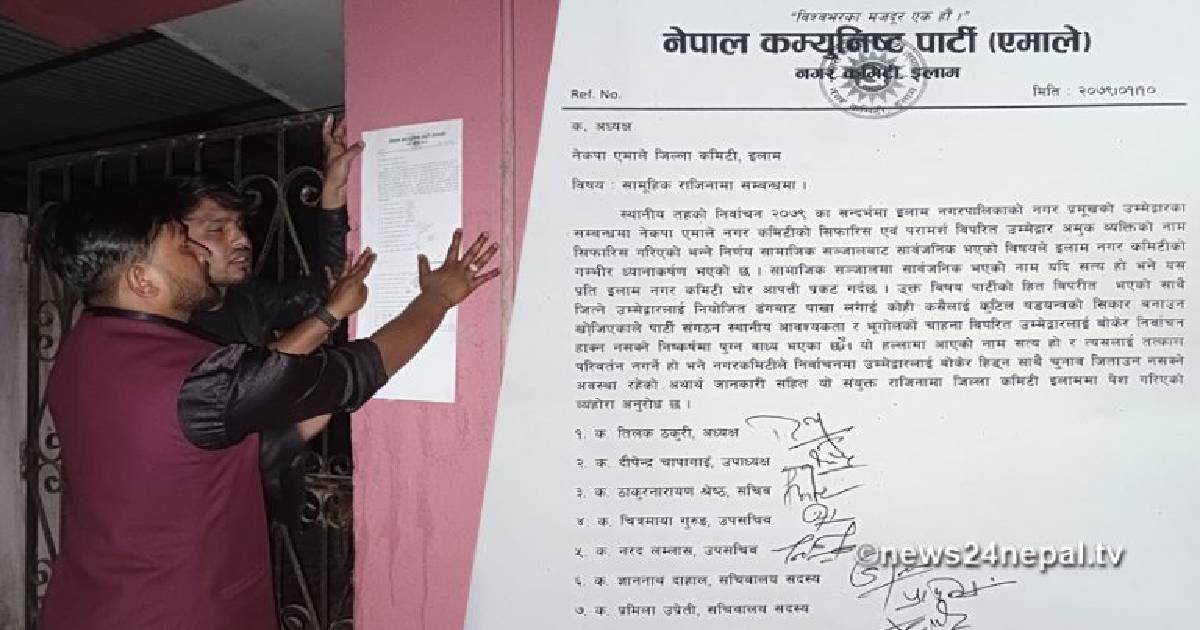 "विश्वभरका मजदूर एक हौं ।"
नेपाल कम्युनिष्ट पार्टी (एमाले)
नगर कमिटी, इलाम
Ref. No.
मिति : २०७९।०१।१०
क. अध्यक्ष
नेकपा एमाले जिल्ला कमिटी, इलाम
विषय : सामूहिक राजिनामा सम्बन्धमा ।
स्थानीय तहको निर्वाचन २०७९ का सन्दर्भमा इलाम नगरपालिकाको नगर प्रमूखको उम्मेद्वारका
सम्बन्धमा नेकपा एमाले नगर कमिटीको सिफारिस एवं परामर्श विपरित उम्मेद्वार अमुक व्यक्तिको नाम
सिफारिस गरिएको भन्ने निर्णय सामाजिक सञ्जालबाट सार्वजनिक भएको विषयले इलाम नगर कमिटीको
गम्भीर ध्यानाकर्षण भएको छ । सामाजिक सञ्जालमा सार्वजनिक भएको नाम यदि सत्य हो भने यस
प्रति इलाम नगर कमिटी घोर आपत्ती प्रकट गर्दछ । उक्त विषय पार्टीको हित विपरीत भएको साथै
जित्ने उम्मेद्वारलाई नियोजित ढंगबाट पाखा लगाई कोही कसैलाई कुटिल षडयन्त्रको सिकार बनाउन
खोजिएकाले पार्टी संगठन स्थानीय आवश्यकता र भूगोलको चाहना विपरित उम्मेद्वारलाई बोकेर निर्वाचन
हाक्न नसक्ने निष्कर्षमा पुग्न वाध्य भएका छौं। यो हल्लामा आएको नाम सत्य हो र त्यसलाई तत्काल
परिवर्तन नगर्ने हो भने नगरकमिटीले निर्वाचनमा उम्मेद्वारलाई बोकेर हिड्न साथै चुनाव जिताउन नसक्ने
अवस्था रहेको अर्याथ जानकारी सहित यो संयुक्त राजिनामा जिल्ला कमिटी इलाममा पेश गरिएको
व्यहोरा अनुरोध छ ।
१. क. तिलक ठकुरी, अध्यक्ष
२. क. दीपेन्द्र चापागाई, उपाध्यक्ष
३. क. ठाकुरनारायण श्रेष्ठ, सचिव
४. क. चित्रमाया गुरुङ, उपसचिव
५. क. नरद लम्लास, उपसचिव
६. क. ज्ञाननाथ दाहाल, सचिवालय सदस्य
७. क. प्रमिला उप्रेती, सचिवालय सदस्य
©news24nepal.tv